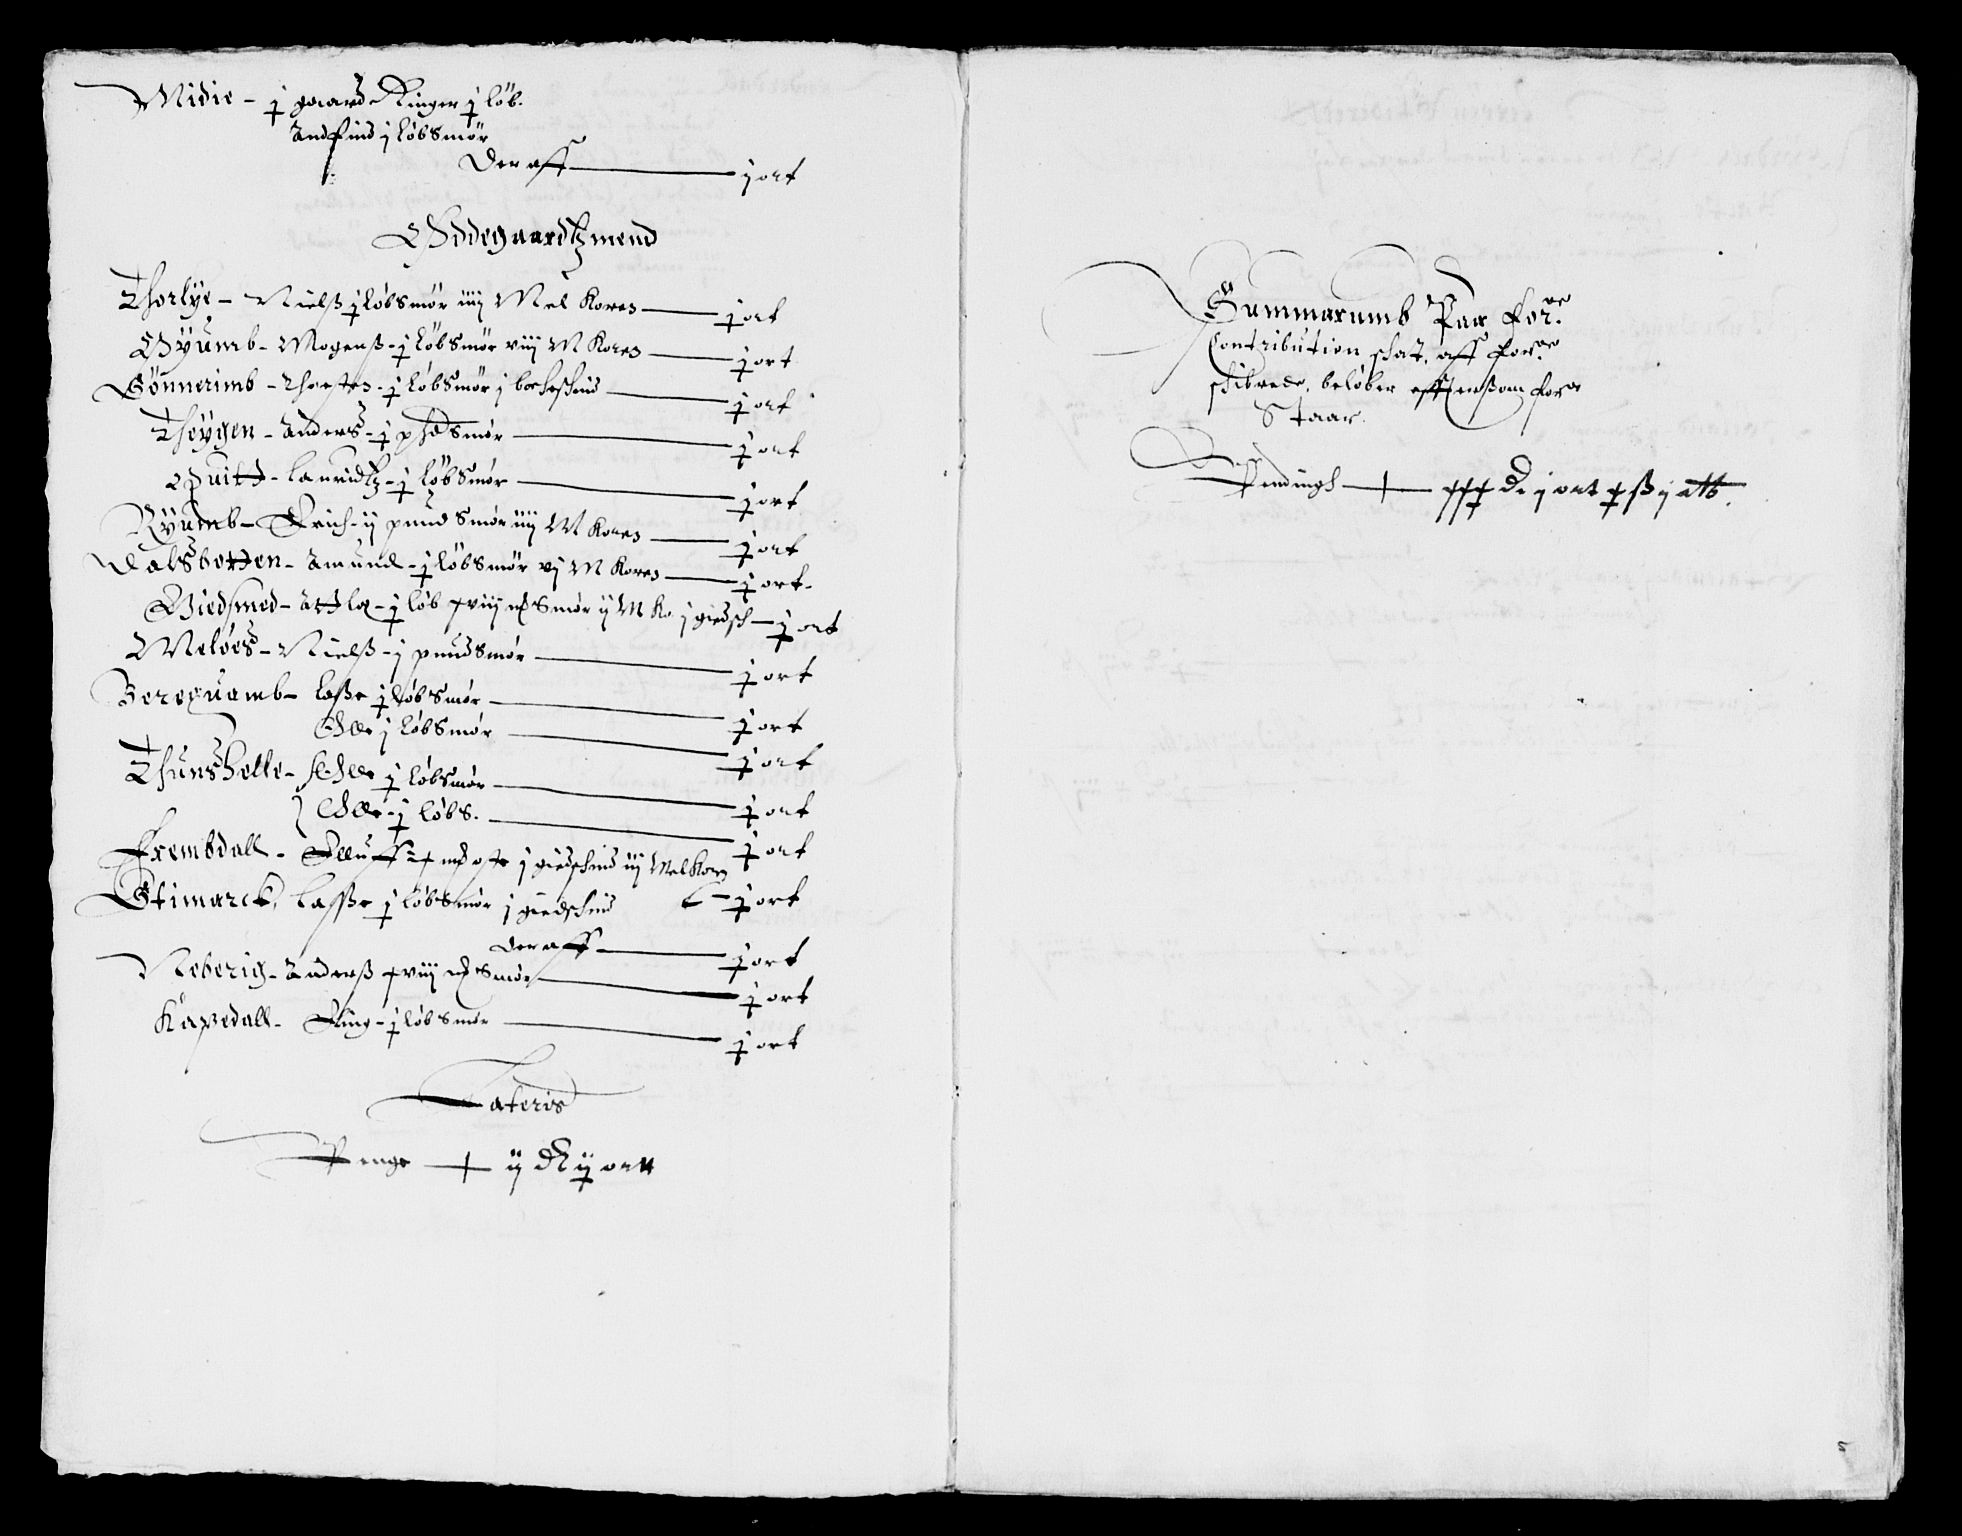 Midie - j gaard Ringer j løb.
Andfind j løbsmør
Deraff — j ort
Øddegaardtzmend
Thorlye - Nielß j løbsmør iiij Mel Korns — j ort
Øyumb - Mogenß - j løbsmør viij M Korns — j ort
Gønnerimb - Thosten - j løbsmør j bocheskind — j ort
Thøygen - Anders - j pd smør — j ort
Quitt - lauridtz - j løbsmør — j ort
Ryumb - Erich - ij pund smør iiij M Korns — j ort
Dalsbotten - Amund - j løbsmør vj M Korns — j ort
Giedsmed - Attle - j løb xviij mk smør ij M Ko j giedsk — j ort
Meløes - Nielß - j pund smør — j ort
Berequamb - laße j løbsmør — j ort
Olle j løbsmør — j ort
Thunshelle - Olle j løbsmør — j ort
Olle - j løbs. — j ort
Frembdall - j giedskind iij Mel Korn
— j ort
Stimarck, laße j løbsmør j giedskind
deraff — j ort
Neberig - Anderß xviij mk smør — j ort
Kapedall - j løbsmør — j ort
Lateris
Penge — ij dlr ij ort
Summarumb Paa for:ne
Contribution skat, aff for:ne
schibrede, beløber efftersom for
Staar.
Pendingh — xxx dr j ort x ß j alb.
5